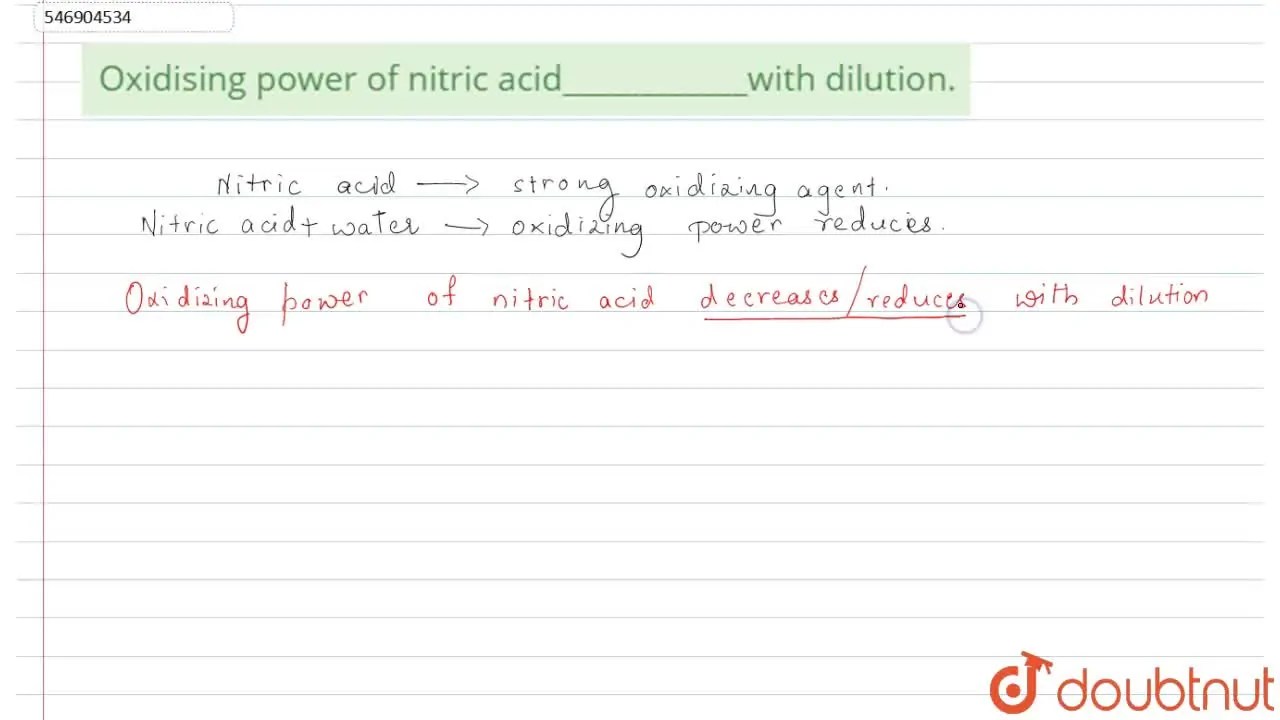 546904534
Oxidising power of nitric acid____________with dilution.
Nitric acid → strong oxidizing agent.
Nitric acid + water → oxidizing power reduces.
Oxidizing power of nitric acid decreases/reduces with dilution
doubtnut